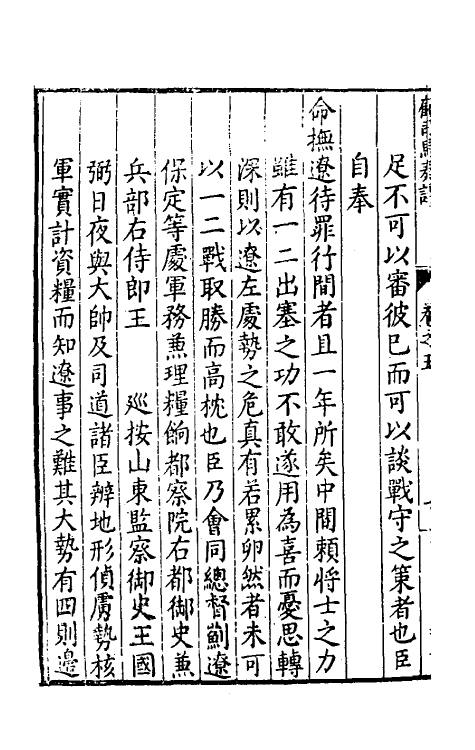 卷之五
足不可以審彼已而可以談戰守之策者也臣
自奉
命撫遼待罪行間者且一年所矣中間賴將士之力
雖有一二出塞之功不敢遂用為喜而憂思轉
深則以遼左處勢之危真有若累卵然者未可
以一二戰取勝而高枕也臣乃會同總督薊遼
保定等處軍務兼理糧餉都察院右都御史兼
兵部右侍郎王　　巡按山東監察御史王國
弼日夜與大帥及司道諸臣辨地形偵虜勢核
軍實計資糧而知遼事之難其大勢有四則邊